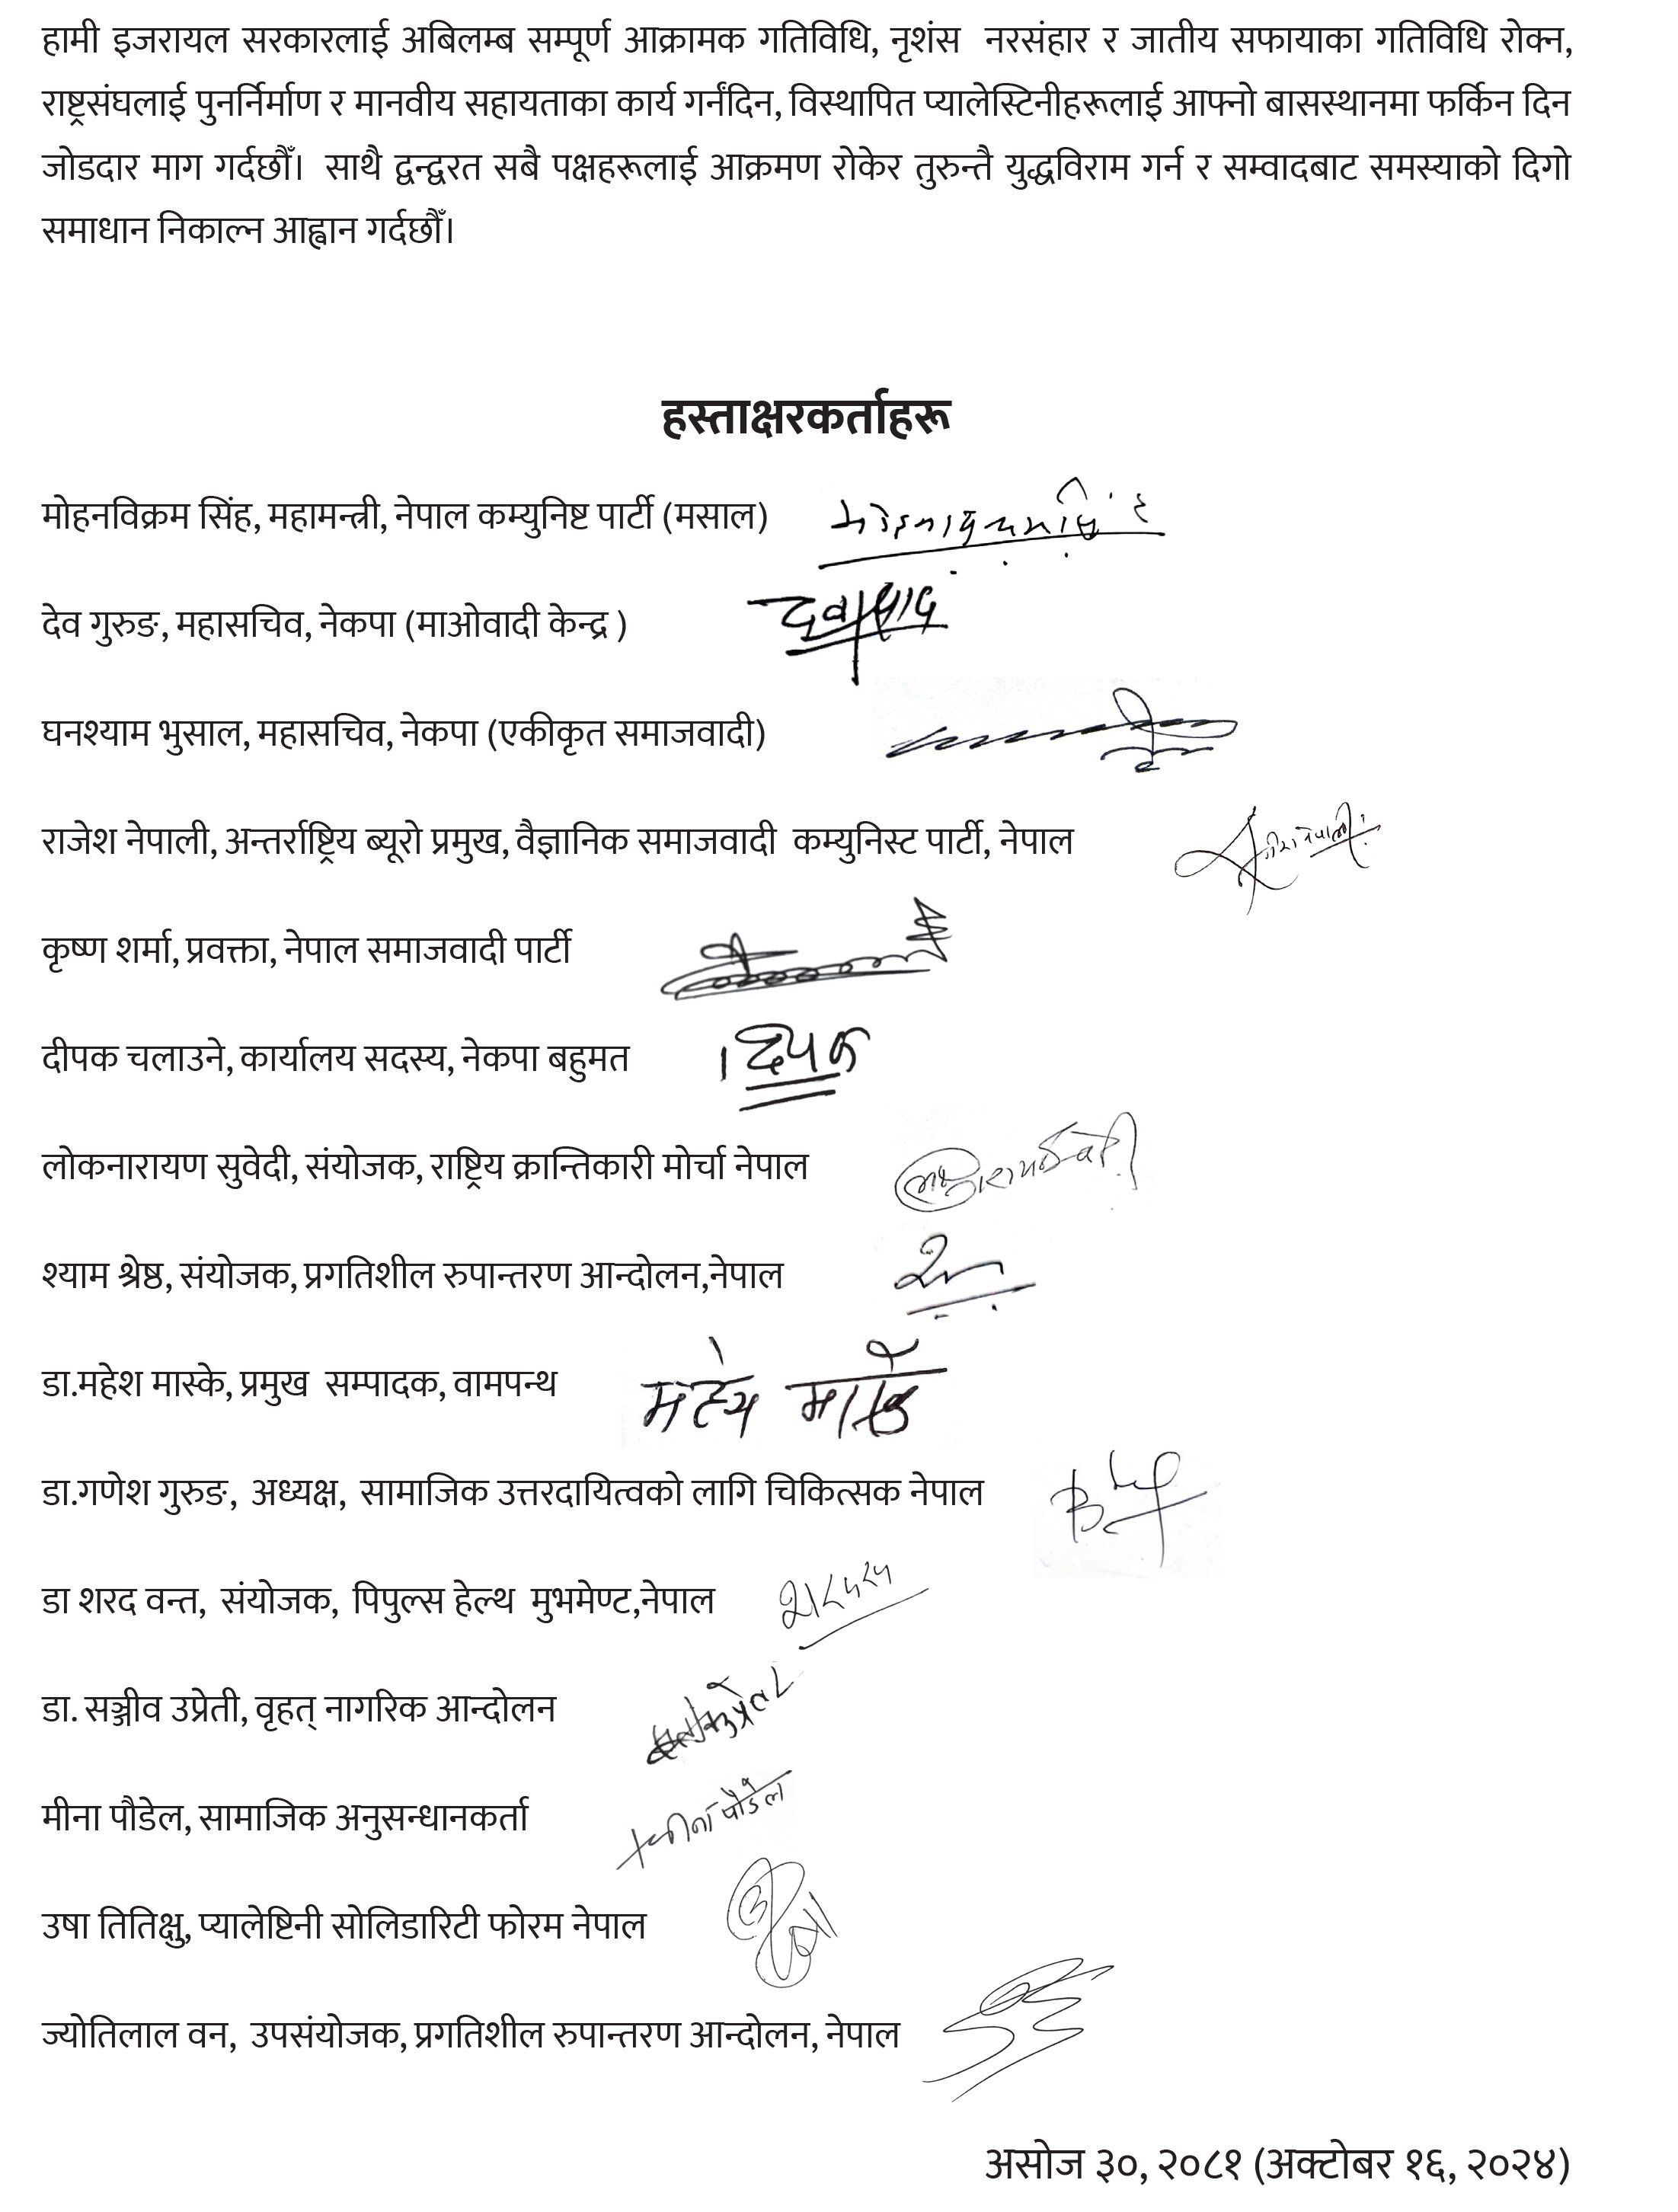 हामी इजरायल सरकारलाई अबिलम्ब सम्पूर्ण आक्रामक गतिविधि, नृशंस नरसंहार र जातीय सफायाका गतिविधि रोक्न,
राष्ट्रसंघलाई पुनर्निर्माण र मानवीय सहायताका कार्य गर्नंदिन, विस्थापित प्यालेस्टिनीहरूलाई आफ्नो बासस्थानमा फर्किन दिन
जोडदार माग गर्दछौँ। साथै द्वन्द्वरत सबै पक्षहरूलाई आक्रमण रोकेर तुरुन्तै युद्धविराम गर्न र सम्वादबाट समस्याको दिगो
समाधान निकाल्न आह्वान गर्दछौँ।
हस्ताक्षरकर्ताहरू
मोहनविक्रम सिंह, महामन्त्री, नेपाल कम्युनिष्ट पार्टी (मसाल)
देव गुरुङ, महासचिव, नेकपा (माओवादी केन्द्र )
घनश्याम भुसाल, महासचिव, नेकपा (एकीकृत समाजवादी)
राजेश नेपाली, अन्तर्राष्ट्रिय ब्यूरो प्रमुख, वैज्ञानिक समाजवादी कम्युनिस्ट पार्टी, नेपाल
कृष्ण शर्मा, प्रवक्ता, नेपाल समाजवादी पार्टी
दीपक चलाउने, कार्यालय सदस्य, नेकपा बहुमत
लोकनारायण सुवेदी, संयोजक, राष्ट्रिय क्रान्तिकारी मोर्चा नेपाल
श्याम श्रेष्ठ, संयोजक, प्रगतिशील रुपान्तरण आन्दोलन,नेपाल
डा.महेश मास्के, प्रमुख सम्पादक, वामपन्थ
डा.गणेश गुरुङ, अध्यक्ष, सामाजिक उत्तरदायित्वको लागि चिकित्सक नेपाल
डा शरद वन्त, संयोजक, पिपुल्स हेल्थ मुभमेण्ट,नेपाल
डा. सञ्जीव उप्रेती, वृहत् नागरिक आन्दोलन
मीना पौडेल, सामाजिक अनुसन्धानकर्ता मीना पौडेल
उषा तितिक्षु, प्यालेष्टिनी सोलिडारिटी फोरम नेपाल
ज्योतिलाल वन, उपसंयोजक, प्रगतिशील रुपान्तरण आन्दोलन, नेपाल
असोज ३०, २०८१ (अक्टोबर १६, २०२४)